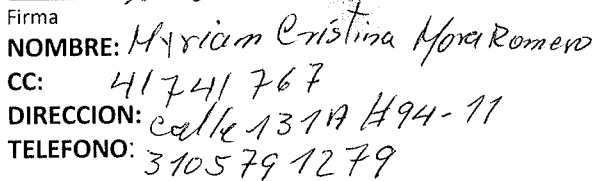 Firma
NOMBRE: Myriam Cristina Mora Romero
CC: 41741767
DIRECCION: calle 131A #94-11
TELEFONO: 3105791279